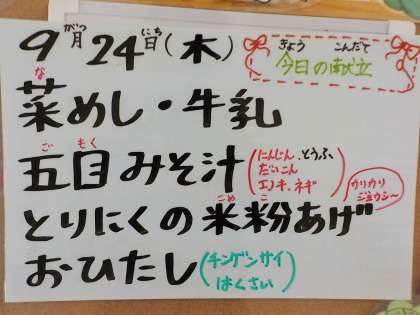 9月24日(木)
がつ にち
きょう こんだて
今日の献立
な
菜めし・牛乳
ご もく
五目みそ汁
(にんじん、とうふ、
だいこん
エノキ、ネギ)
カリカリ
ジューシー
こめ こ
とりにくの米粉あげ
おひたし
(チンゲンサイ
はくさい)